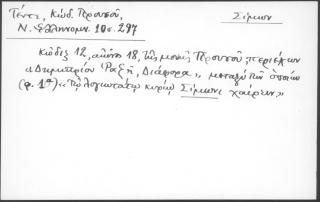 Τέντε, Κώδ. Προυσοῦ,
Σίμων
Ν. Ἑλληνομν. 10ος. 297
Κώδιξ 12, αἰῶνος 18, τῆς μονῆς Προυσοῦ, περιέχων
«Δημητρίου Ῥαζῆ, Διάφορα», μεταξὺ τῶν ὁποίων
(φ. 1α) «Τῷ λογιωτάτῳ κυρίῳ Σίμωνι χαίρειν»